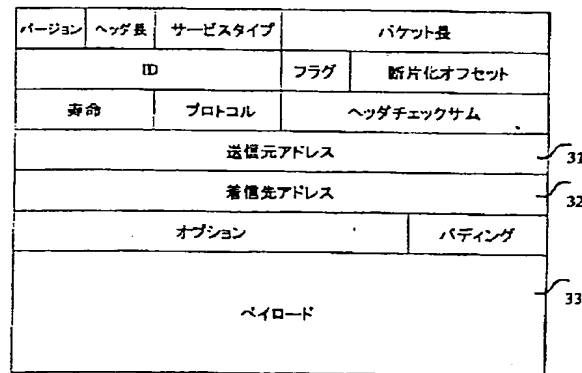 バージョン ヘッダ長 サービスタイプ パケット長
ID フラグ 断片化オフセット
寿命 プロトコル ヘッダチェックサム
送信元アドレス 31
着信先アドレス 32
オプション パディング
ペイロード 33